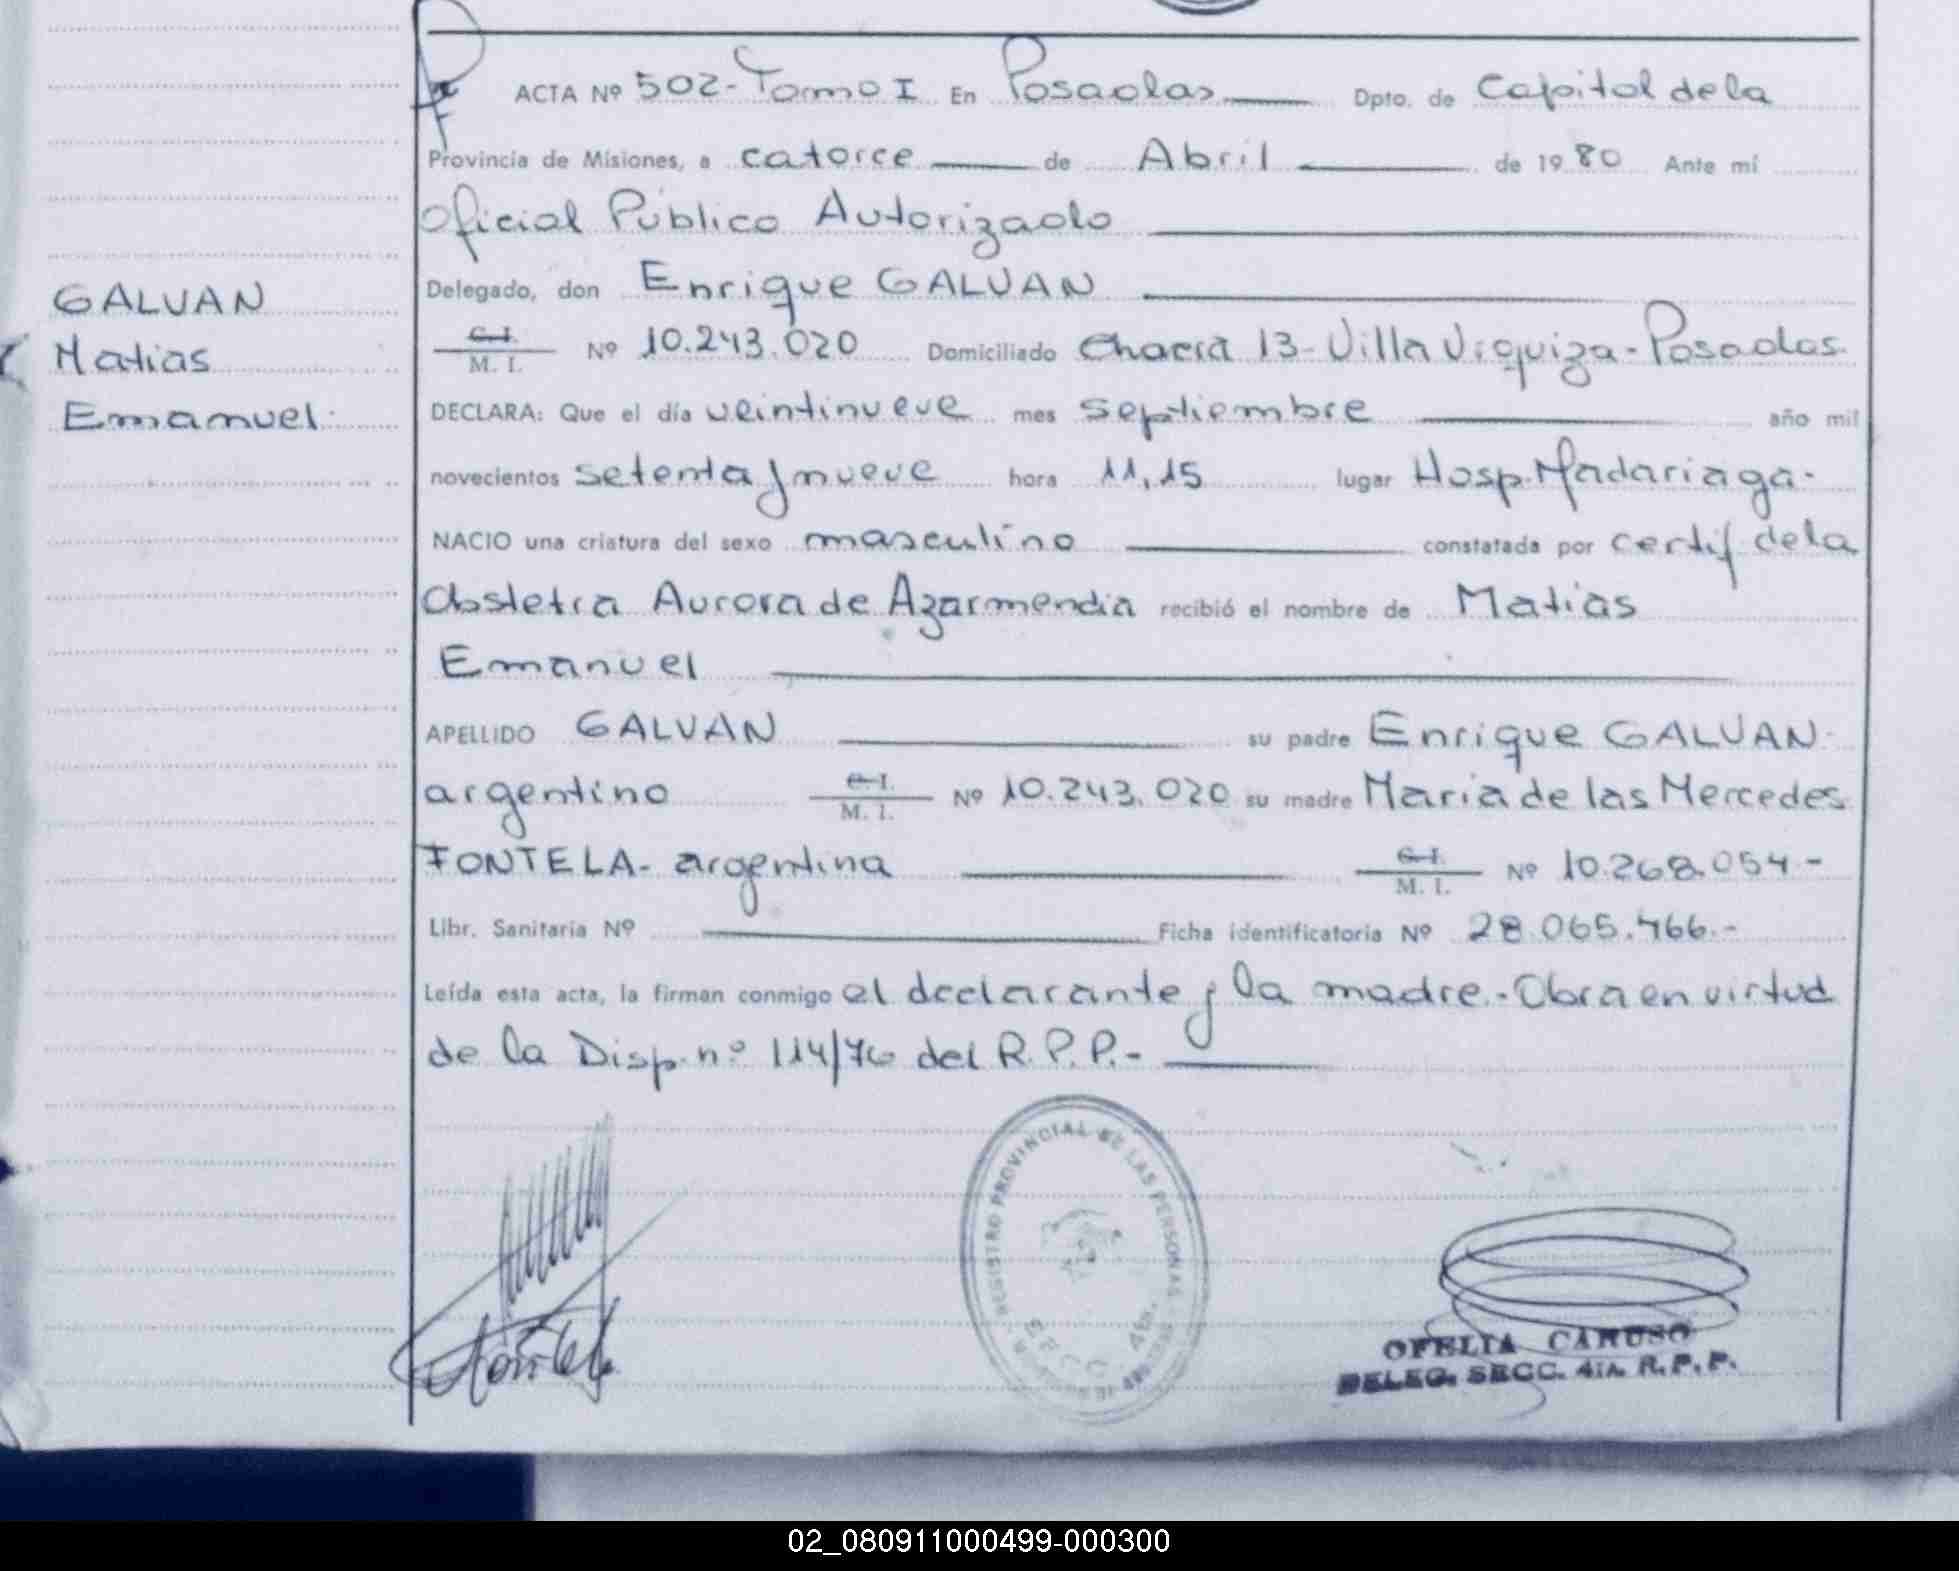 ACTA Nº 502-Tomo I En Posadas Dpto. de Capital de la
Provincia de Misiones, a catorce de Abril de 1980 Ante mí
Oficial Público Autorizado
GALVAN
Matias
Emanuel
Delegado, don Enrique GALVAN
C.I. M. I. Nº 10.243.020 Domiciliado Chacra 13-Villa Urquiza-Posadas
DECLARA: Que el día veintinueve mes septiembre año mil
novecientos setenta y nueve hora 11,15 lugar Hosp. Madariaga-
NACIO una criatura del sexo masculino constatada por certif de la
Obstetra Aurora de Azarmendia recibió el nombre de Matias
Emanuel
APELLIDO GALVAN su padre Enrique GALVAN
argentino C.I. M. I. Nº 10.243.020 su madre Maria de las Mercedes
FONTELA- argentina C.I. M. I. Nº 10.268.054-
Libr. Sanitaria Nº Ficha identificatoria Nº 28.065.466.-
Leída esta acta, la firman conmigo el declarante y la madre.-Obra en virtud
de la Disp. nº 114/76 del R.P.P.-
REGISTRO PROVINCIAL DE LAS PERSONAS
SECC. 4ta.
OFELIA CARUSO
DELEG. SECC. 4ta. R.P.P.
02_080911000499-000300